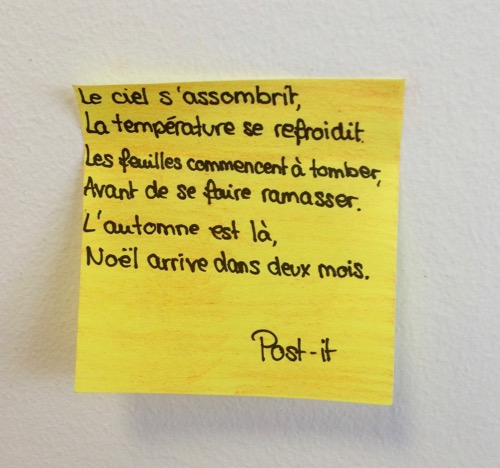 Le ciel s'assombrit,
La température se refroidit.
Les feuilles commencent à tomber,
Avant de se faire ramasser.
L'automne est là,
Noël arrive dans deux mois.
Post-it